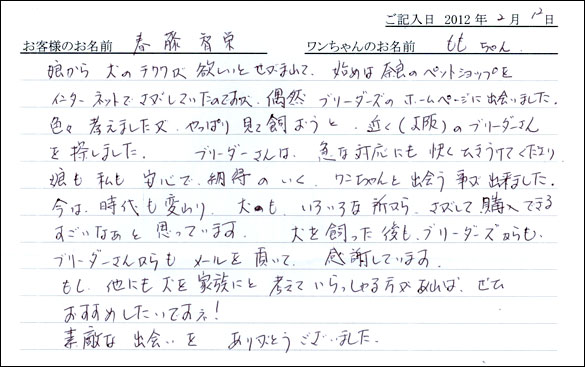 ご記入日 2012年 2月 12日
お客様のお名前 春藤 智栄 ワンちゃんのお名前 もも ちゃん
娘から 犬のチワワが 欲しいとせがまれて、始めは奈良のペットショップを
インターネットでさがしていたのですが、偶然 ブリーダーズの ホームページに出会いました。
色々 考えましたが、やっぱり 見て飼おうと、近く(大阪)のブリーダーさん
を探しました。 ブリーダーさんは、急な対応にも 快くひきうけてくださり
娘も 私も 安心で、納得の いく、ワンちゃんと 出会う 事が 出来ました。
今は、時代も変わり、犬も、いろいろな所から、さがして購入できる
すごいなぁと 思っています。 犬を飼った後も、ブリーダーズからも、
ブリーダーさんからも メールを頂いて、感謝しています。
もし、他にも犬を家族にと 考えていらっしゃる方があれば、ぜひ
おすすめしたいですネ!
素敵な 出会いを ありがとうございました。